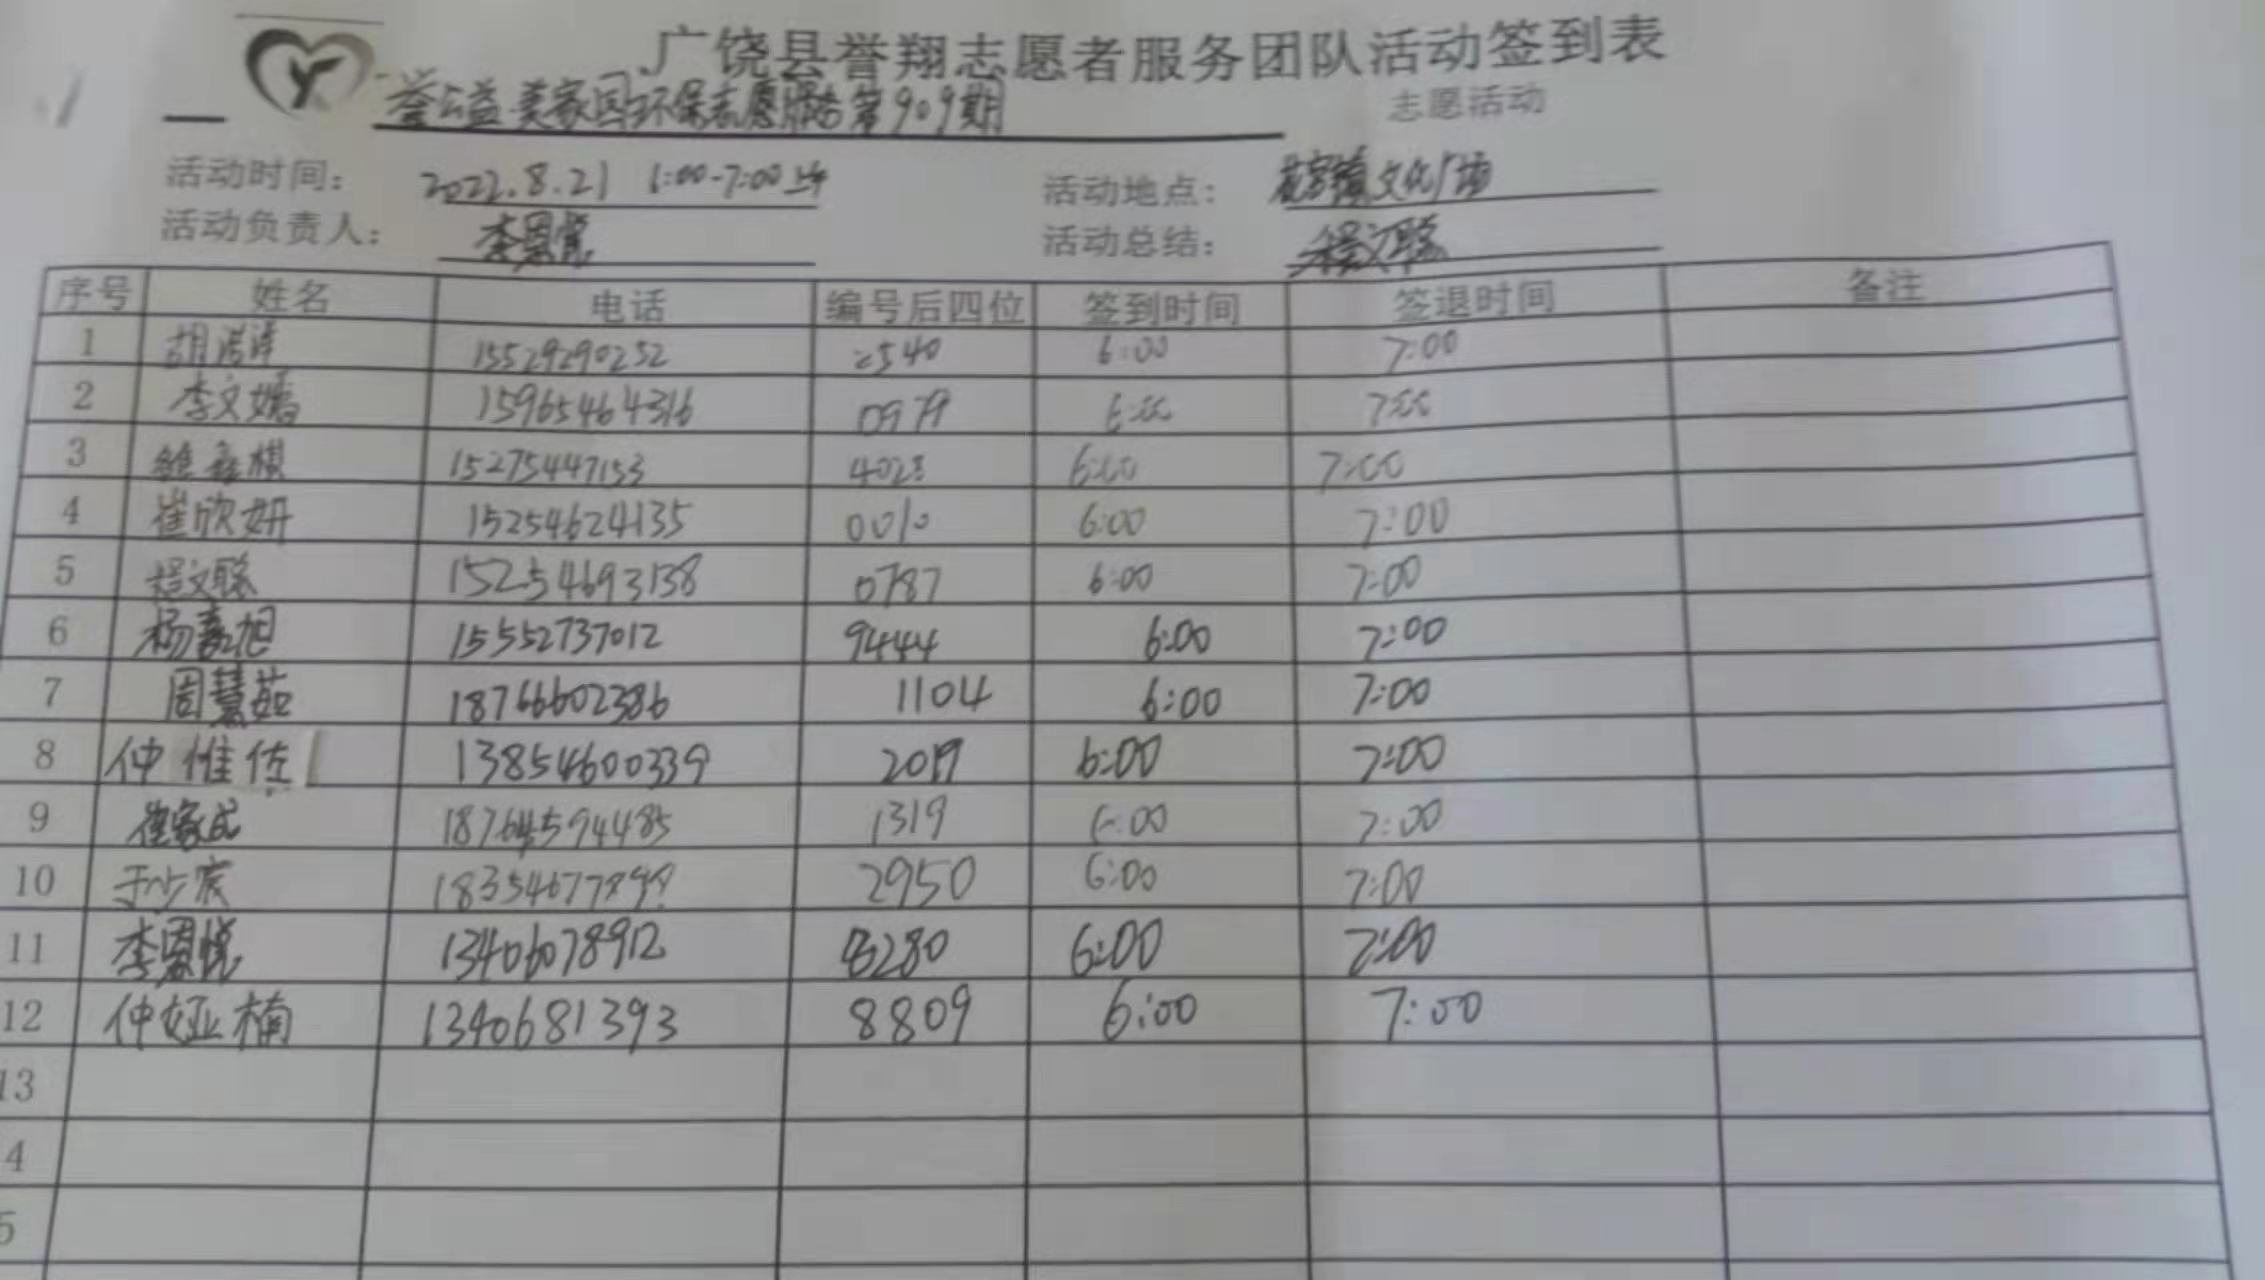 广饶县誉翔志愿者服务团队活动签到表
誉公益 美家园环保志愿服务第909期 志愿活动
活动时间： 2022.8.21 6:00-7:00 活动地点： 花官镇文化广场
活动负责人： 李恩悦 活动总结： 程文聪
序号 姓名 电话 编号后四位 签到时间 签退时间 备注
1 胡浩泽 15529290252 2540 6:00 7:00
2 李文嫱 15965464316 0979 6:00 7:00
3 15275447153 4023 6:00 7:00
4 崔欣妍 15254624135 0010 6:00 7:00
5 程文聪 15254693138 0787 6:00 7:00
6 杨嘉旭 15552737012 9444 6:00 7:00
7 周慧茹 18766602386 1104 6:00 7:00
8 仲惟佐 13854600339 2019 6:00 7:00
9 崔家成 18764594485 1319 6:00 7:00
10 于少宸 2950 6:00 7:00
11 李恩悦 13406078912 8280 6:00 7:00
12 仲娅楠 1340681393 8809 6:00 7:00
13
4
5